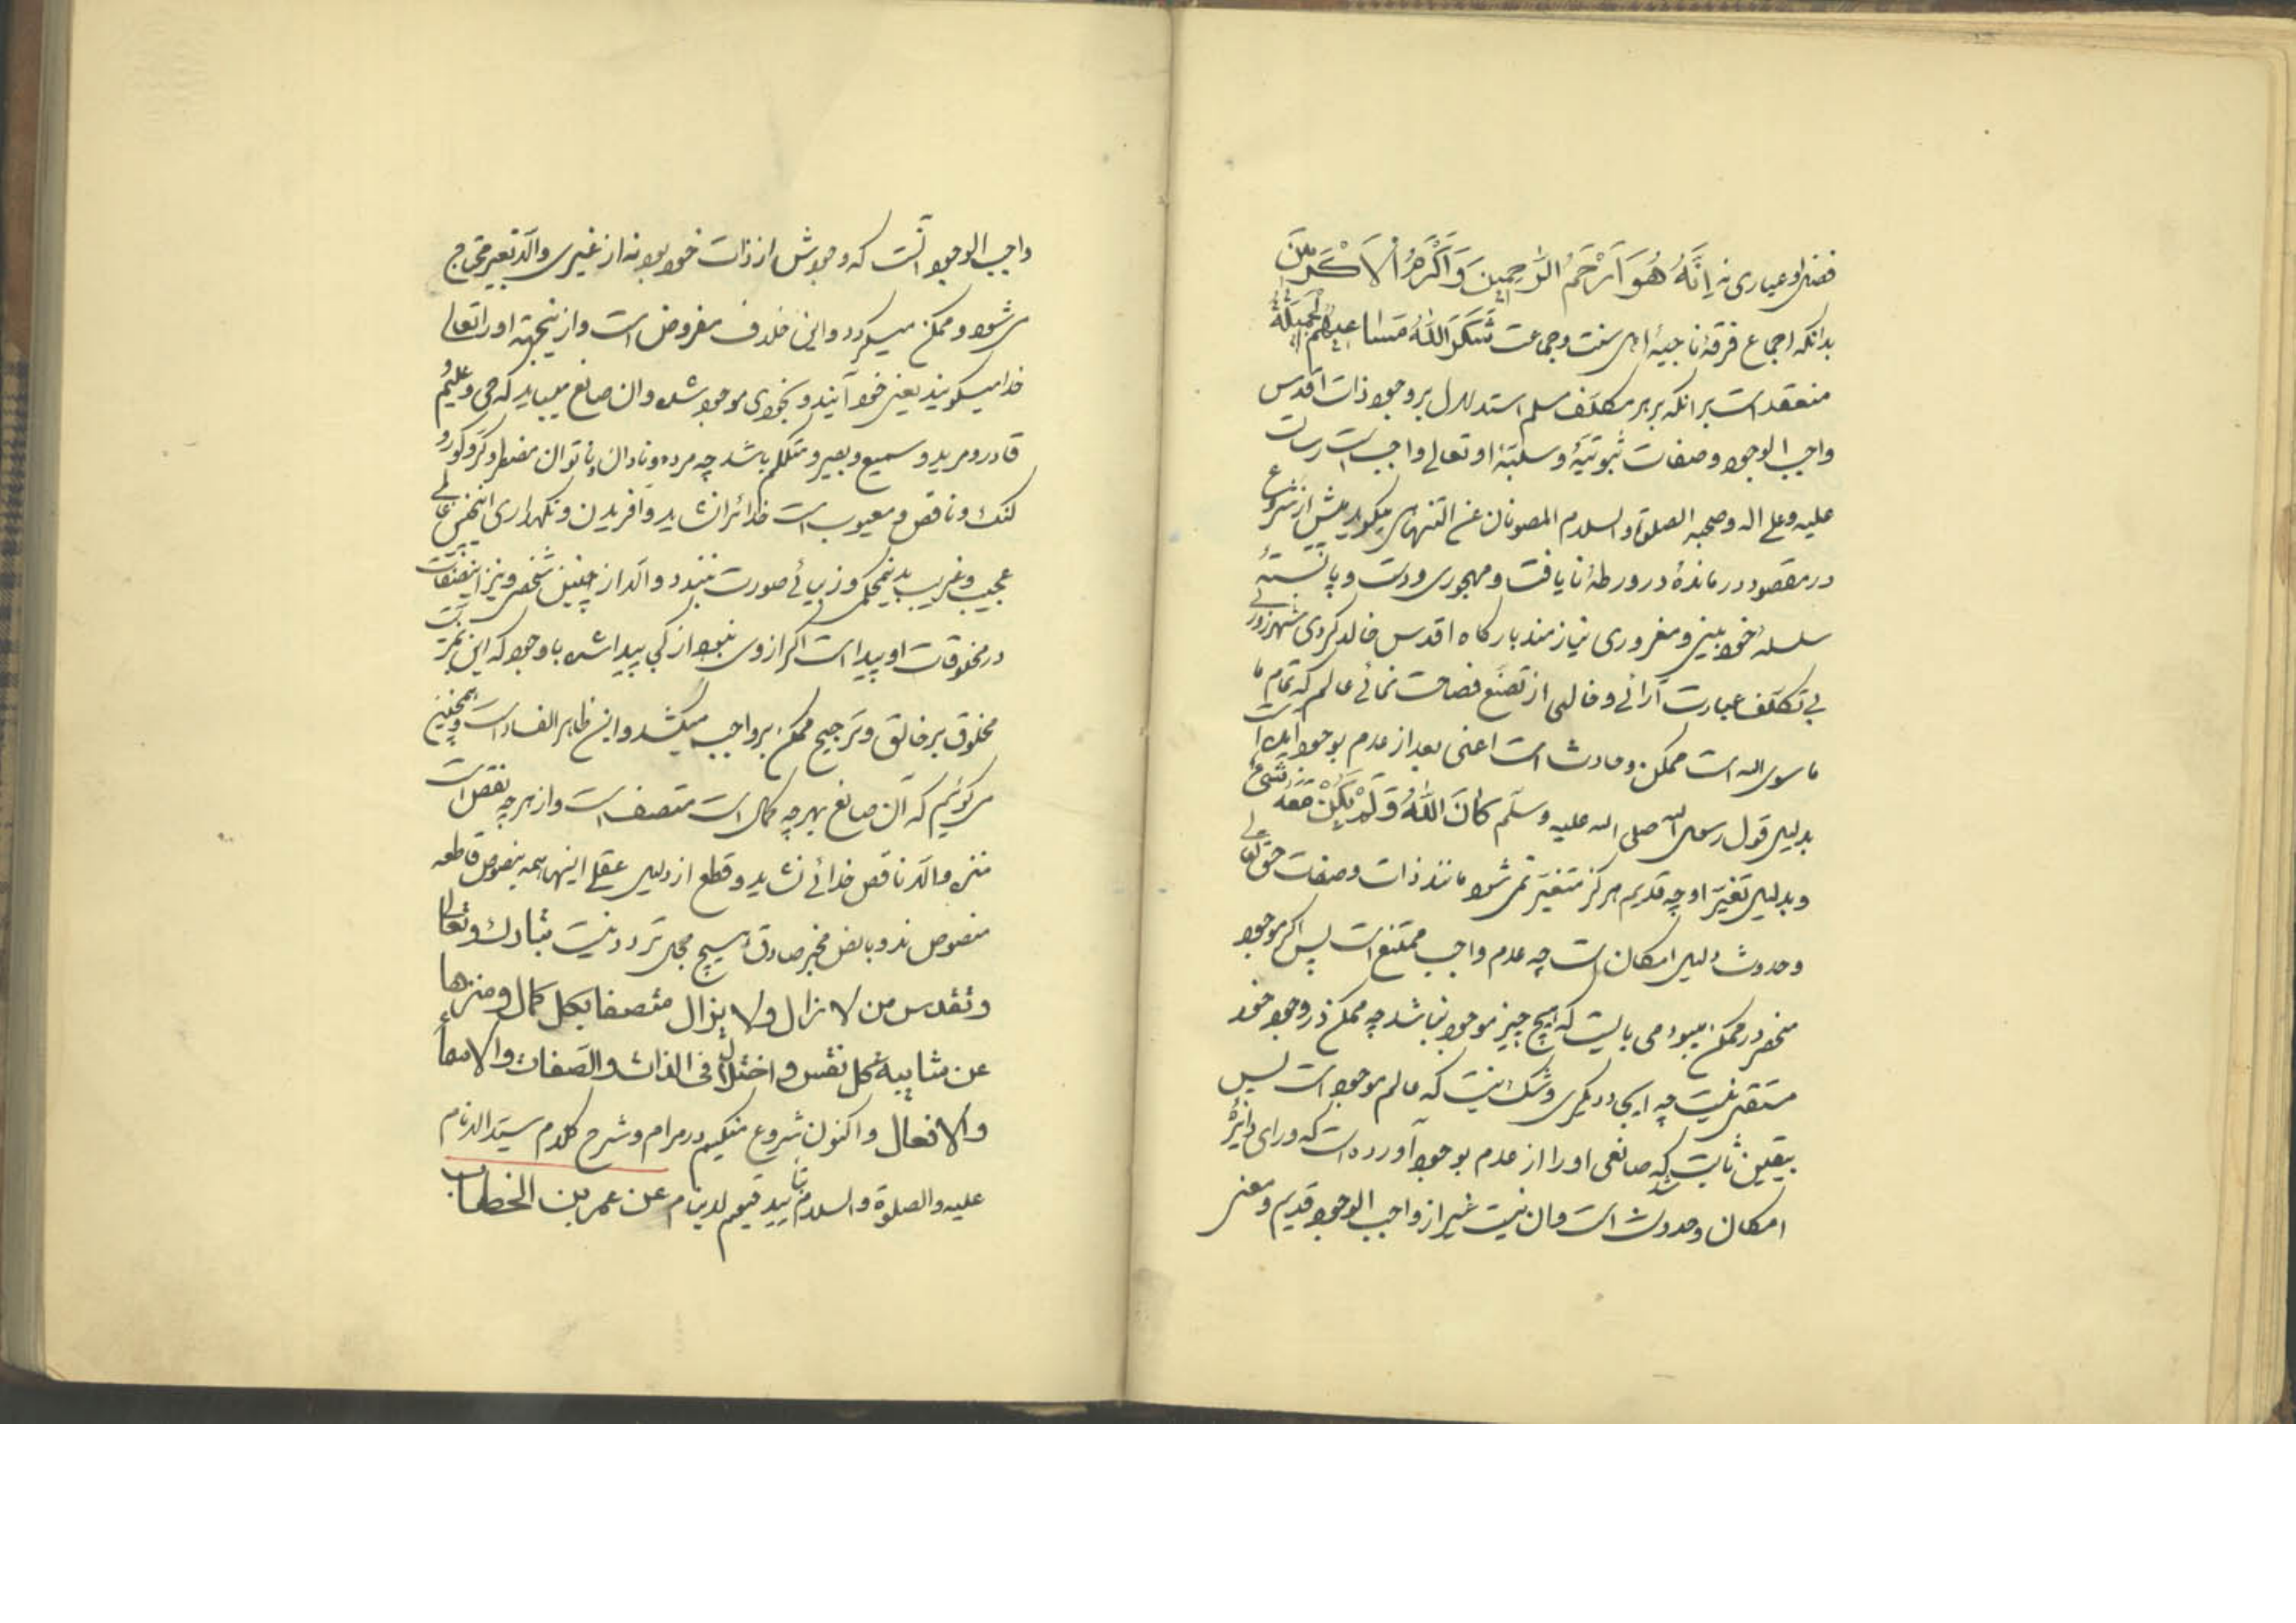 فضل او عیاری نه اِنَّهُ هُوَ اَرْحَمُ الرَّاحِمِینَ وَاَكْرَمُ الْاَكْرَمِینَ
بدانکه اجماع فرقهٔ ناجیهٔ اهل سنت وجماعت شَکَرَ اللّٰهُ مَسَاعِیَهُمُ الْجَمِیلَةَ
منعقد است برانکه بر هر مکلف مسلم استدلال بر وجود ذات اقدس
واجب الوجود وصفات ثبوتیّه وسلبیّهٔ او تعالی واجب است
علیه وعلی اله وصحبه الصلوة والسلام المصونان عن التناهی میکوید پیش از شروع
در مقصود درماندهٔ در ورطهٔ نایافت ومهجوری ودست وپا بستهٔ
سلسلهٔ خودبینی ومغروری نیازمند بارکاه اقدس خالد کردی شهرزوری
بی تکلّف عبارت آرائی وخالی از تصنّع فصاحت نمائی عالم که تمام
ما سوی الله است ممکن وحادث است اعنی بعد از عدم بوجود آمده است
بدلیل قول رسول الله صلی الله علیه وسلّم کَانَ اللّٰهُ وَلَمْ یَکُنْ مَعَهُ شَیْءٌ
وبدلیل تغیّر او چه قدیم هرکز متغیّر نمی شود مانند ذات وصفات حق تعالی
وحدوث دلیل امکان است چه عدم واجب ممتنع است پس اکر موجود
منحصر در ممکن میبود می بایست که هیچ چیز موجود نباشد چه ممکن در وجود خود
مستقل نیست چه ایجاد دیکری وشک نیست که عالم موجود است پس
بیقین ثابت شد که صانعی او را از عدم بوجود آورده است که ورای دائرهٔ
امکان وحدوث است وان نیست غیر از واجب الوجود قدیم ومعنی
واجب الوجود انست که وجودش از ذات خود بود نه از غیری والّا بغیر محتاج
می شود وممکن میکردد واین خلاف مفروض است وازینجهة او را تعالی
خدا میکویند یعنی خود آینده وبخودی موجود شده وان صانع میباید که حی وعلیم و
قادر ومرید وسمیع وبصیر ومتکلم باشد چه مرده ونادان وناتوان مضطر وکر وکور و
لنک وناقص ومعیوب است خدائی را نشاید وآفریدن ونکهداری اینچنین عالمی
عجیب وغریب بدین محکمی وزیبائی صورت نبندد والّا از چنین شخصی ونیز این صفات
در مخلوقات او پیدا است اکر از وی نبود از کی پیدا شده باوجود که این مزیّت
مخلوق بر خالق وترجیح ممکن بر واجب میکشد واین ظاهر الفساد است وهمچنین
میکوئیم که آن صانع بهرچه کمال است متصف است واز هرچه نقص است
منزه والّا ناقص خدائی نشاید وقطع از دلیل عقلی اینها همه بنصوص قاطعه
منصوص اند وبا نص مخبر صادق هیچ محل تردد نیست تبارك وتعالی
وتقدس من لا زال ولا یزال متصفا بکل کمال ومنزها
عن مشابهة کل نقص واختلال فی الذات والصفات والاسماء
والافعال واکنون شروع میکنیم در مرام وشرح کلام سیّد الانام
علیه والصلوة والسلام بتایید قیوم لاینام عن عمر بن الخطاب